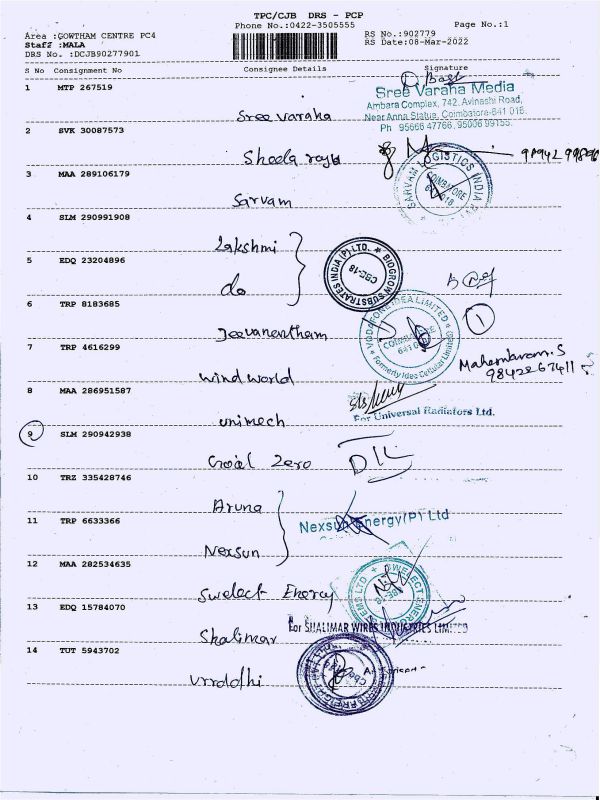 TPC/CJB DRS - PCP
Phone No.:0422-3505555
Page No.:1
Area :GOWTHAM CENTRE PC4
Staff :MALA
DRS No. :DCJB90277901
RS No.:902779
RS Date:08-Mar-2022
S No Consignment No Consignee Details Signature
1 MTP 267519
Sree varaha
Sree Varaha Media
Ambara Complex, 742, Avinashi Road,
Near Anna Statue, Coimbatore-641 018.
Ph 95666 47766, 95006 99155.
2 SVK 30087573
Sheela
3 MAA 289106179
Sarvam
SARVAM LOGISTICS INDIA
COIMBATORE
4 SLM 290991908
Lakshmi
5 EDQ 23204896
do
BIOGROW SUBSTRATES INDIA (P) LTD.
CBE-18
6 TRP 8183685
Jeevanantham
VODAFONE IDEA LIMITED
COIMBATORE
(Formerly Idea Cellular Limited)
1
7 TRP 4616299
wind world
9842267411
8 MAA 286951587
unimech
For Universal Radiators Ltd.
9 SLM 290942938
Goal Zero
10 TRZ 335428746
Aruna
11 TRP 6633366
Nexsun
Nexsun Energy(P) Ltd
12 MAA 282534635
Swelect Energy
SWELECT ENERGY
13 EDQ 15784070
Shalimar
For SHALIMAR WIRES INDUSTRIES LIMITED
14 TUT 5943702
Vrddhi